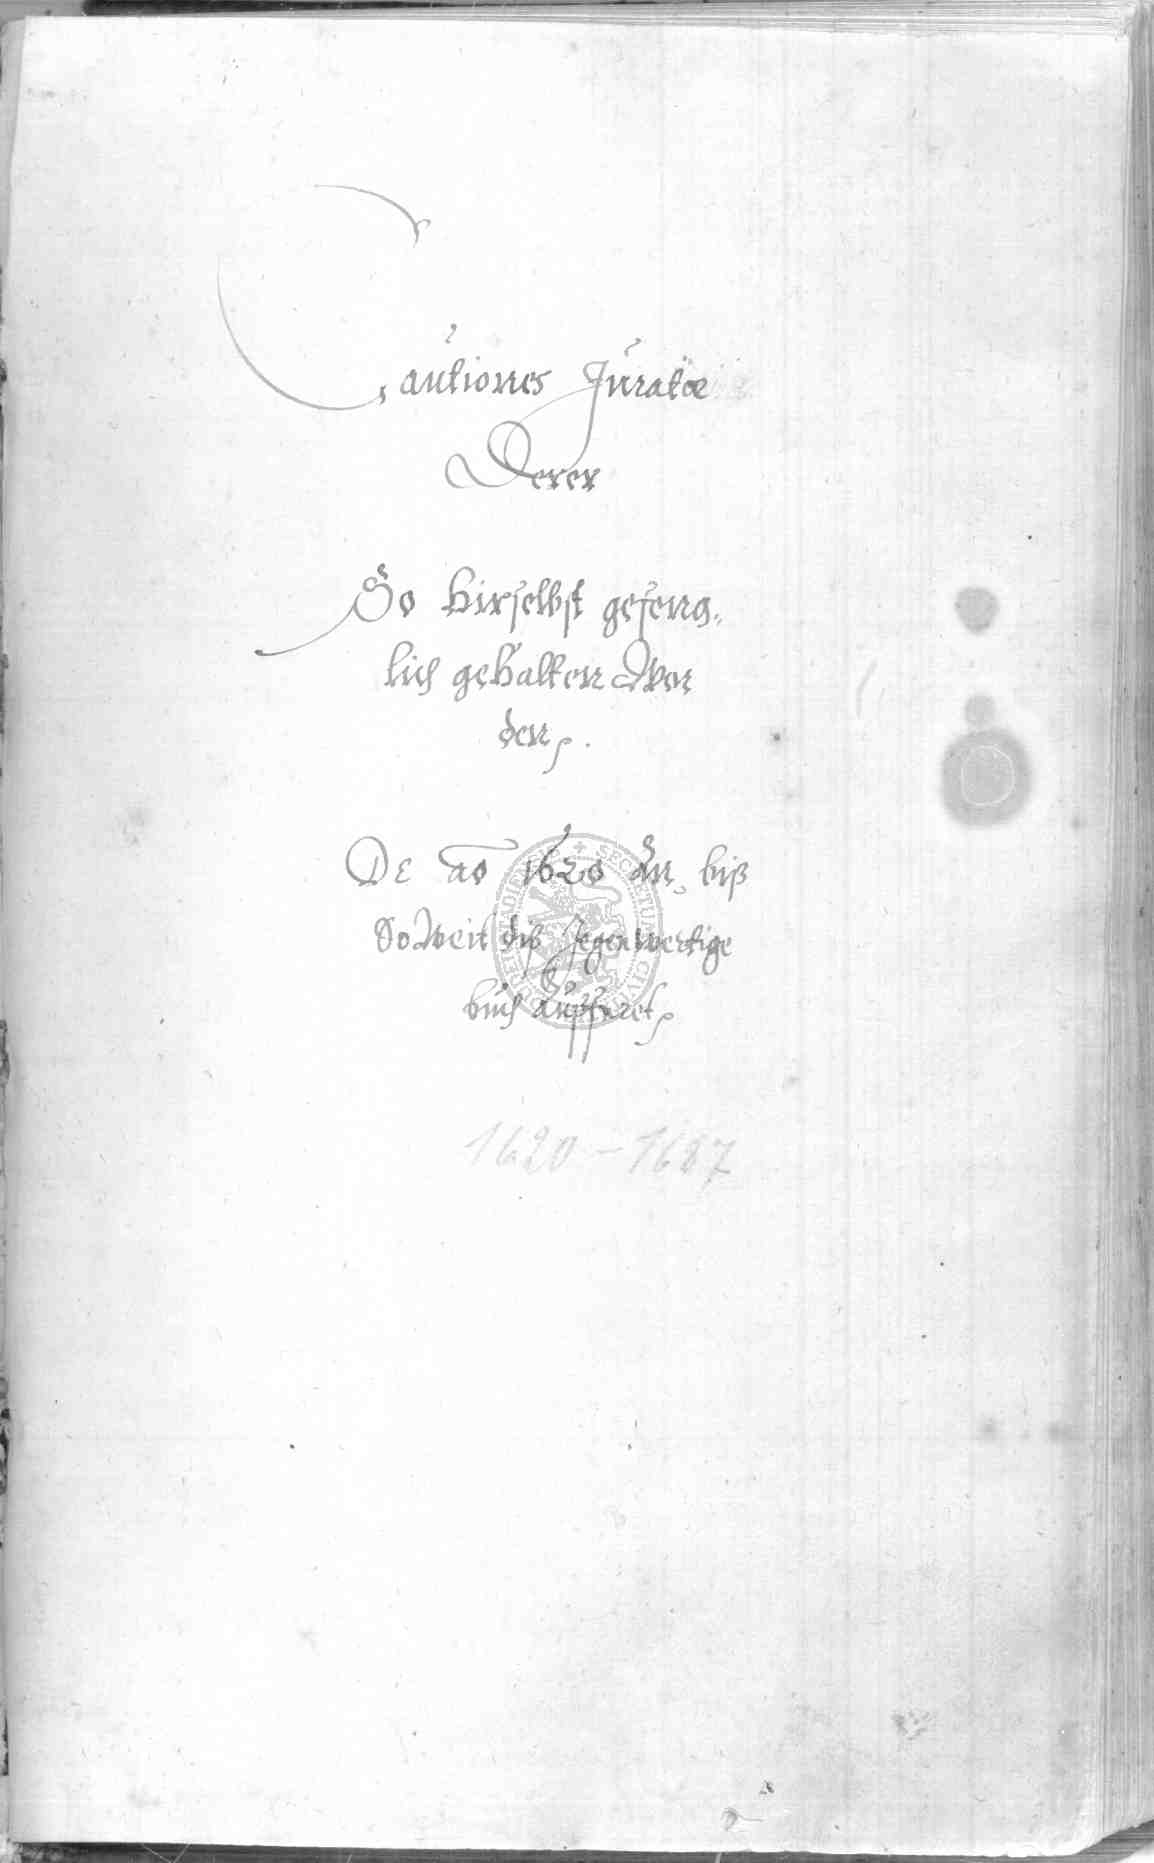 Cautiones Juratæ
Derer
So hirselbst gefeng-
lich gehalten Wor
den.
De ao 1620 an, biß
So Weit diß Jegenwertige
buch
1620-1687
SECRETUM CIVI